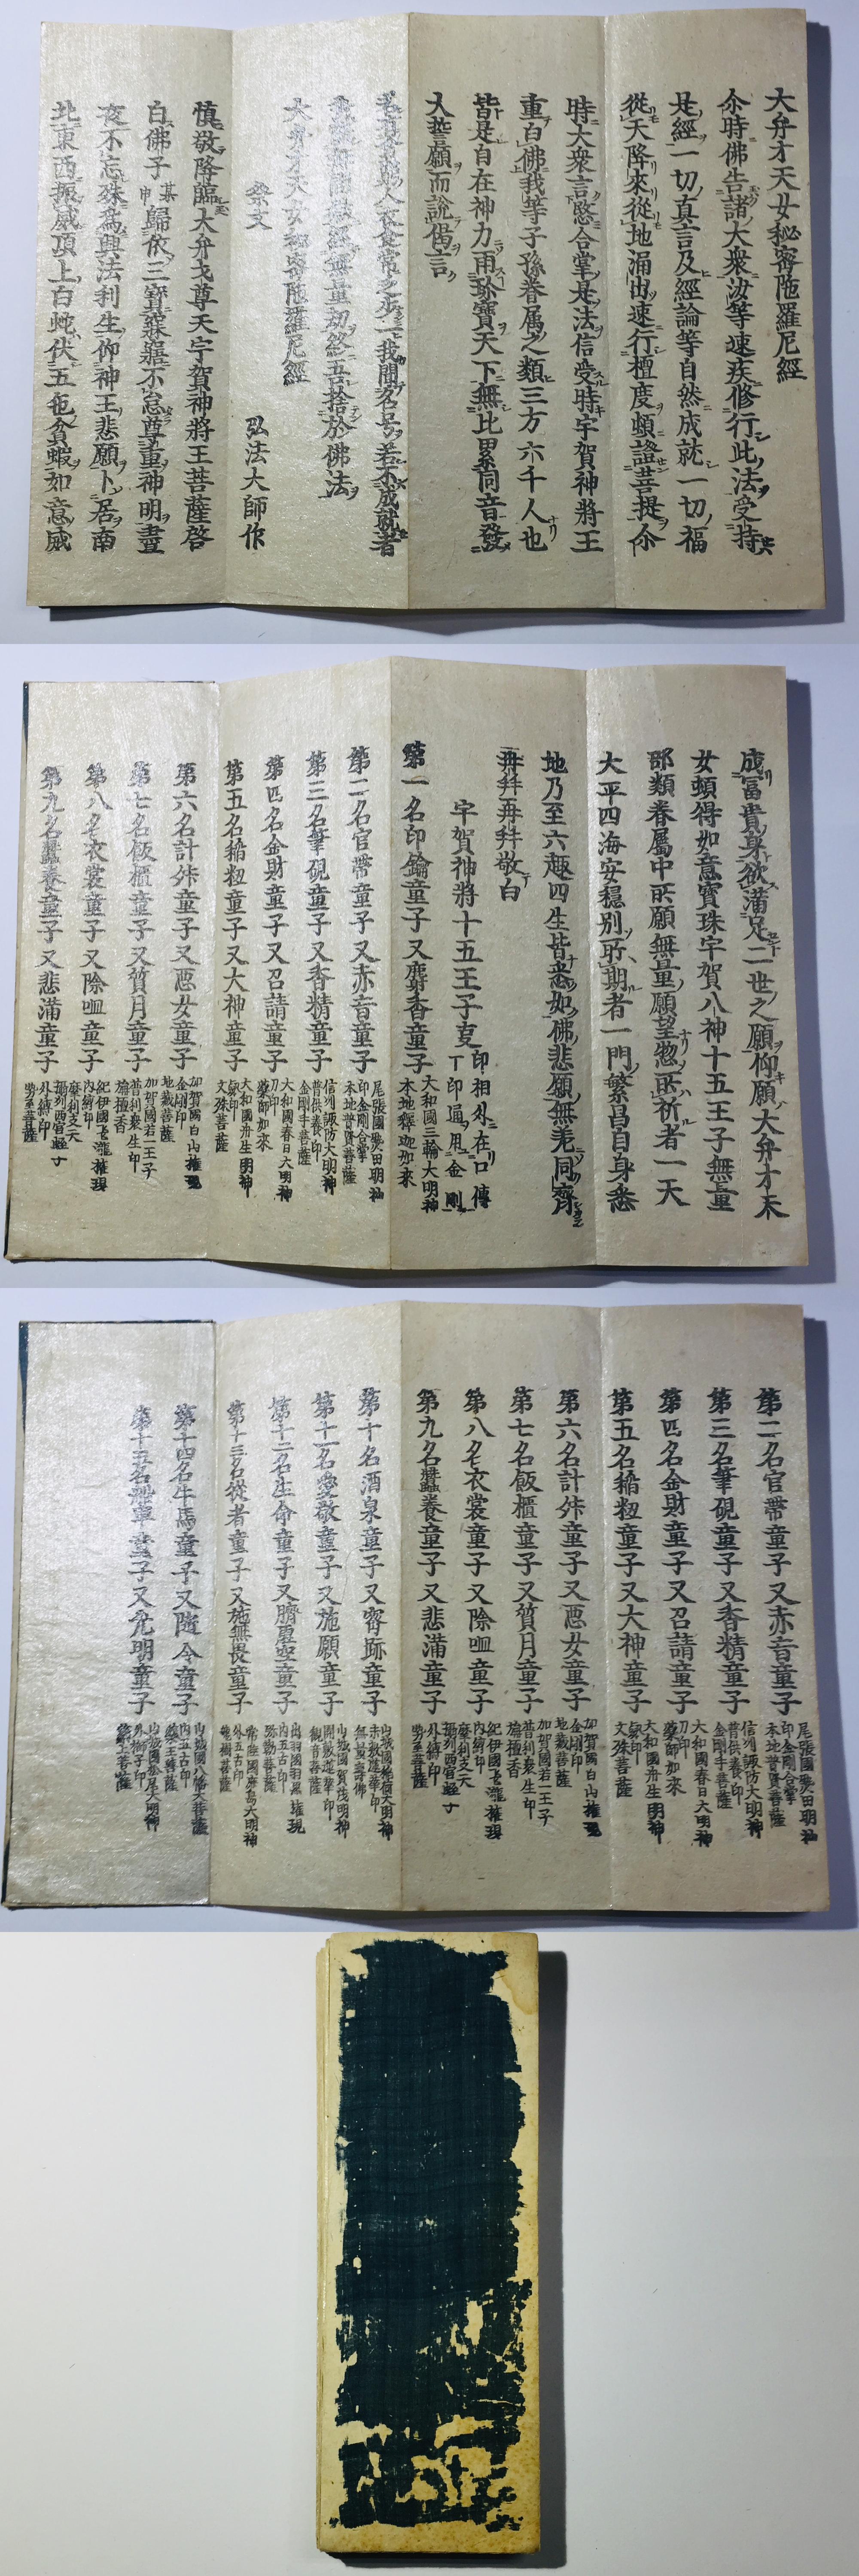 大弁才天女秘密陁羅尼経
尒時佛告諸大衆汝等速疾修行此法受持
是經一切真言及經論等自然成就一切福
從天降來從地涌出速行檀度頓證菩提尒
時大衆言愍合掌是法信受時宇賀神將王
重白佛我等子孫眷属之類三方六千人也
皆是自在神力雨珍寶天下無比累同音發
大誓願而說偈言
人衣食常乏少一我聞名号若不成就者
經無量劫終吾捨於佛法
大弁才天女秘密陁羅尼經
祭文 弘法大師作
慎敬降臨大弁才尊天宇賀神將王菩薩啓
白佛子某甲歸依三寶寤寐不怠尊重神明晝
夜不忘殊為興法利生仰神王悲願卜居南
北東西振威頂上白蛇伏五色貪蝦如意威
成冨貴身欲滿足二世之願仰願大弁才天
女頓得如意寶珠宇賀八神十五王子無量
部類眷屬中所願無量願望惣所祈者一天
大平四海安穏別所期者一門繁昌自身悉
地乃至六趣四生皆悉如佛悲願無差同齊
再拜再拜敬白
宇賀神將十五王子㕝 印相外在口傳 丁印通用金剛
第一名印鑰童子又麝香童子 大和國三輪大明神 本地釋迦如来
第二名官帶童子又赤音童子 尾張國熱田明神 印金剛合掌 本地普賢菩薩
第三名筆硯童子又香精童子 信州諏防大明神 普供養印 金剛手菩薩
第四名金財童子又召請童子 大和國春日大明神 刀印 藥師如来
第五名稲籾童子又大神童子 大和國丹生明神 鉢印 文殊菩薩
第六名計升童子又悪女童子 加賀國白山権現 金剛印 地蔵菩薩
第七名飯櫃童子又質月童子 加賀國若一王子 普利衆生印 旃檀香
第八名衣裳童子又除呬童子 紀伊國飛瀧権現 内縛印 摩利支天
第九名蠶養童子又悲滿童子 攝列西宮蛭子 外縛印 勢至菩薩
第二名官帶童子又赤音童子 尾張國熱田明神 印金剛合掌 本地普賢菩薩
第三名筆硯童子又香精童子 信州諏防大明神 普供養印 金剛手菩薩
第四名金財童子又召請童子 大和國春日大明神 刀印 藥師如来
第五名稲籾童子又大神童子 大和國丹生明神 鉢印 文殊菩薩
第六名計升童子又悪女童子 加賀國白山権現 金剛印 地蔵菩薩
第七名飯櫃童子又質月童子 加賀國若一王子 普利衆生印 旃檀香
第八名衣裳童子又除呬童子 紀伊國飛瀧権現 内縛印 摩利支天
第九名蠶養童子又悲滿童子 攝列西宮蛭子 外縛印 勢至菩薩
第十名酒泉童子又密跡童子 山城國稲荷大明神 未敷蓮華印 無量壽佛
第十一名愛敬童子又施願童子 山城國賀茂明神 開敷蓮華印 觀音菩薩
第十二名生命童子又臍虚空童子 出羽國羽黒権現 内五古印 弥勒菩薩
第十三名從者童子又施無畏童子 常陸國鹿島大明神 外五古印 龍樹菩薩
第十四名牛馬童子又隨令童子 山城國八幡大菩薩 内五古印 藥王菩薩
第十五名舩車童子又光明童子 山城國松尾大明神 外獅子印 藥上菩薩